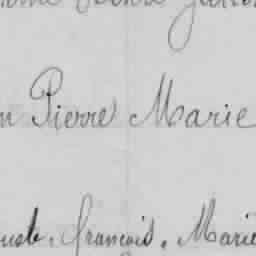 n Pierre Marie
uste. françois. Marie